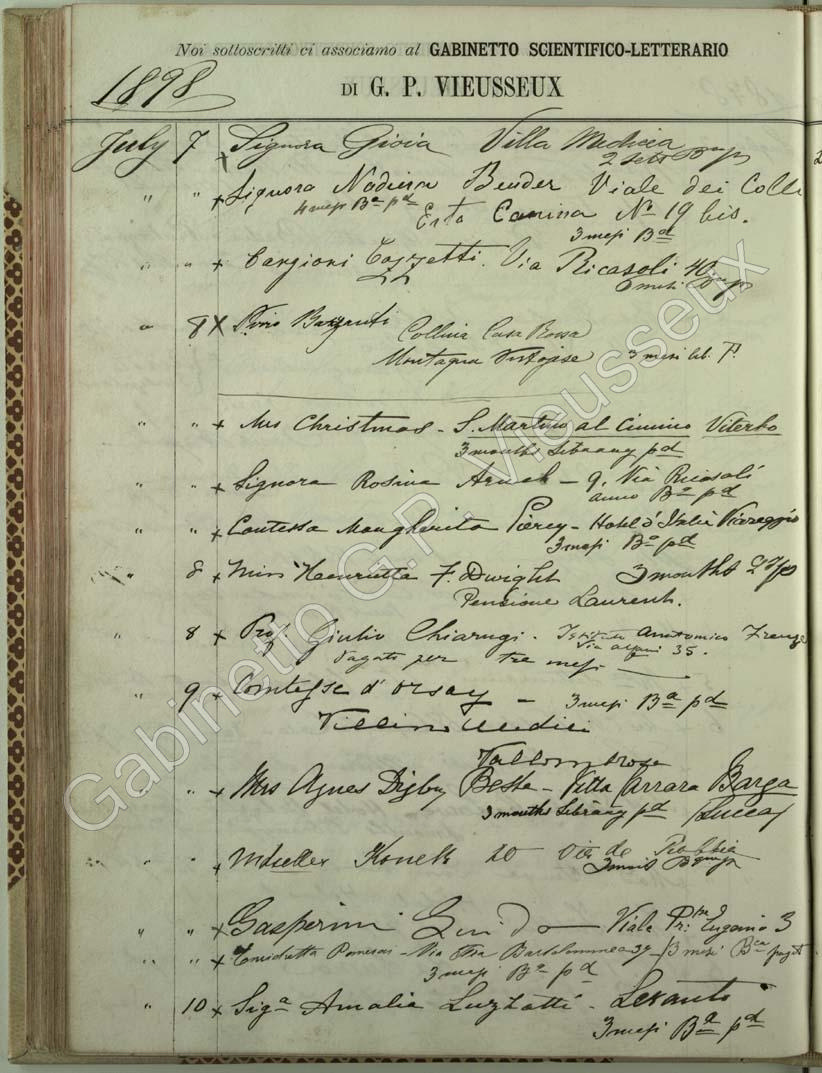 Noi sottoscritti ci associamo al GABINETTO SCIENTIFICO-LETTERARIO
1898
DI G. P. VIEUSSEUX
July 7 x Signora Gioia Villa Medicea
2
" " x Signora Bender Viale dei Colli
4 mesi Ba pd
Erta Canina No 19 bis.
3 mesi Ba
" " x Targioni Tozzetti. Via Ricasoli 40
mesi
" 8 X
Casa Rossa
Montagna Pistojese 3 mesi
" " x Mrs Christmas - S. Martino al Cimino Viterbo
3 months Library pd
" " x Signora Rosina - 9. Via Ricasoli
anno Ba pd
" " x Contessa Margherita Piercy - Hotel d'Italie Viareggio
3 mesi Ba pd
" 8 x Miss Henrietta F. Dwight 3 months
Pensione Laurent.
" 8 x Prof. Giulio Chiarugi. Istituto Anatomico Firenze
Via Alfani 35.
Pagato per tre mesi
" 9 x Comtesse d'Orsay - 3 mesi Ba pd
Villino Medici
Vallombrosa
" " x Mrs Agnes Digby Beste - Villa Carrara Barga
3 months Library pd (Lucca)
" " x 20 Via
3 mois
" " x Gasperini Guido - Viale Pr: Eugenio 3
" " x - Via Fra Bartolommeo 37 - 3 mesi
3 mesi Ba pd
" 10 x Siga Amalia Luzzatti - Levanto
3 mesi Ba pd
Gabinetto G.P. Vieusseux